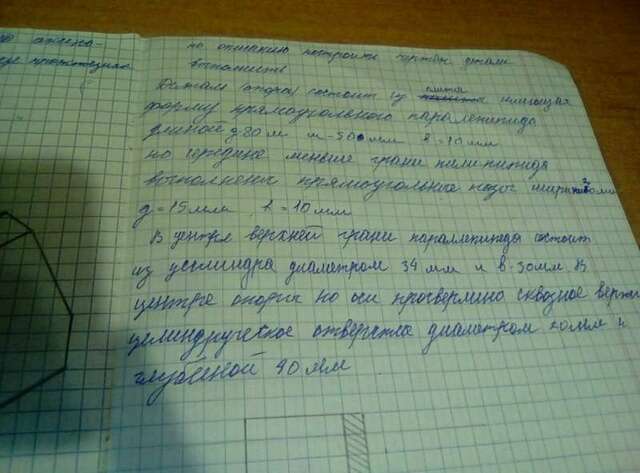 по описанию построить чертёж детали
выполнете
Деталь опора состоит из плиты имеющая
форму прямоугольного паралепипеда
длиной д-80 м ш-50 мм в=10 мм
по середине меньше грани пелипипида
выполнены прямоугольные пазы ширин 20мм
д=15мм, в=10мм
В центре верхней грани параллепипеды состоит
из уселиндра диаметром 34 мм и в-30мм В
центре опоры по оси просверлино сквозное верти
целиндрическое отверстие диаметром 20мм и
глубиной 40 мм